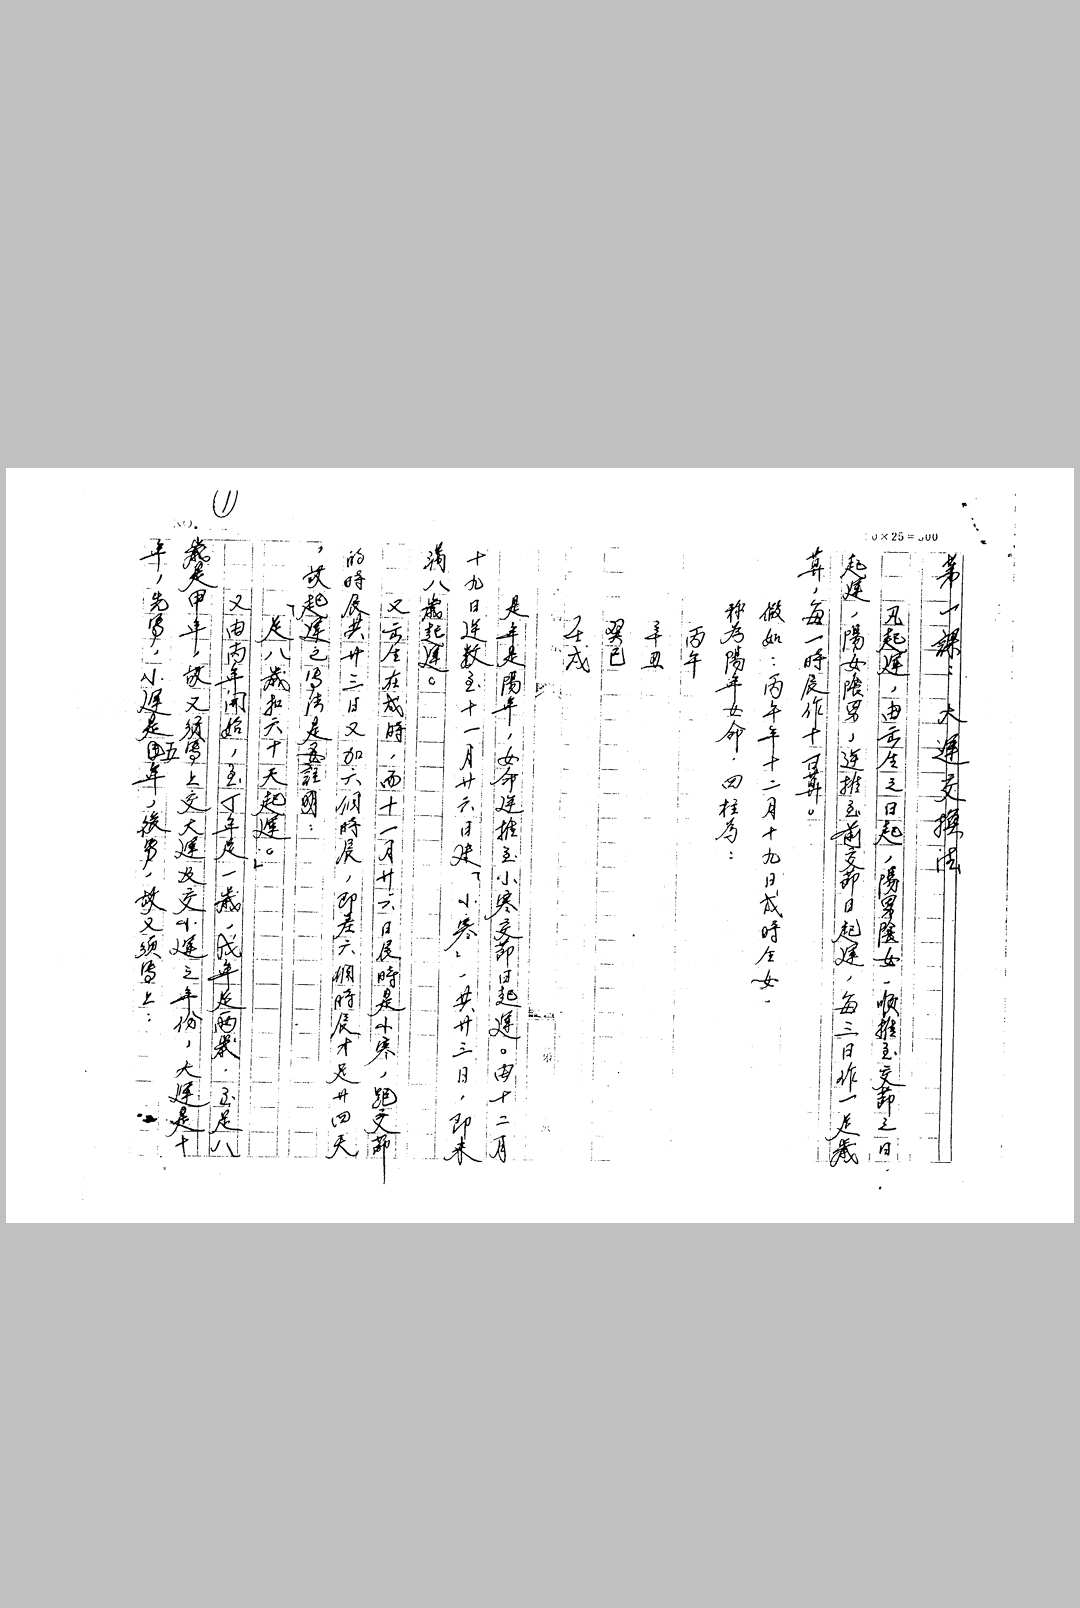 第一課：大運交換法
凡起運，由出生之日起，陽男陰女，順推至交節之日，
起運，陽女陰男，逆推至前交節日起運，每三日作一足歲
算，每一時辰作十日算。
假如：丙午年十二月十九日戌時生女，
稱為陽年女命，四柱為：
丙午
辛丑
癸巳
壬戌
是年是陽年，女命逆推至小寒交節日起運。由十二月
十九日逆數至十一月廿六日是「小寒」，共廿三日，即未
滿八歲起運。
又出生在戌時，而十一月廿六日辰時是小寒，距交節
的時辰共廿三日又加六個時辰，即差六個時辰才足廿四天
，故起運之寫法是註明：
「足八歲扣六十天起運。」
又由丙年開始，至丁年足一歲，戌年足兩歲，至足八
歲是甲年，故又須寫上交大運及交小運之年份，大運是十
年，先寫，小運是五年，後寫，故又須寫上：
①
NO.
0×25=500